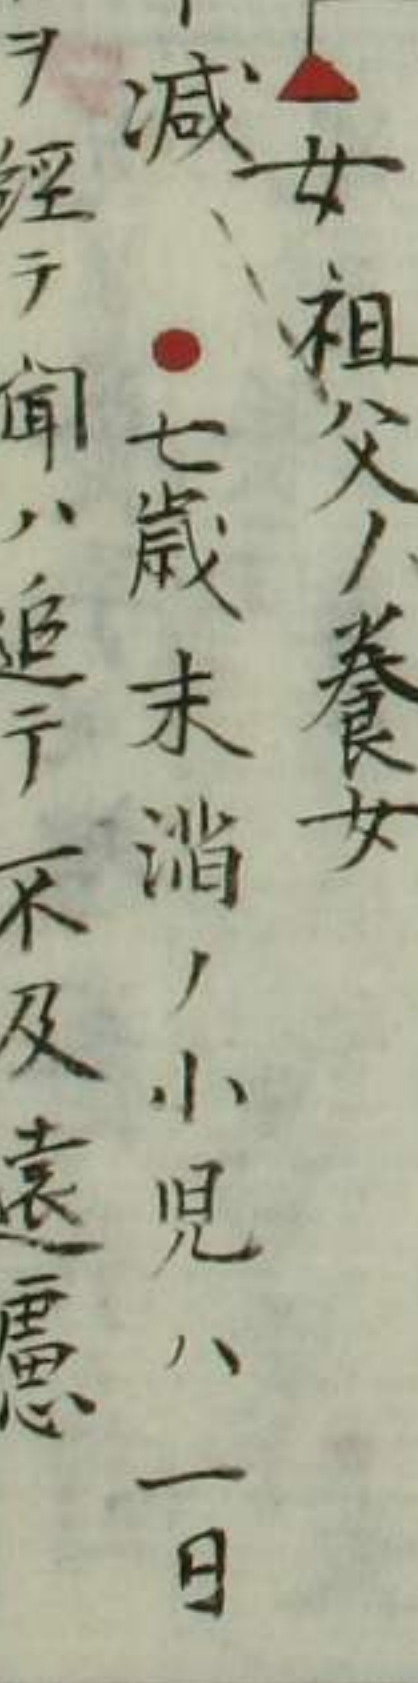 女祖父ノ養女
減 七歳末満ノ小児ハ一日
ヲ經テ聞ハ追テ不及遠慮